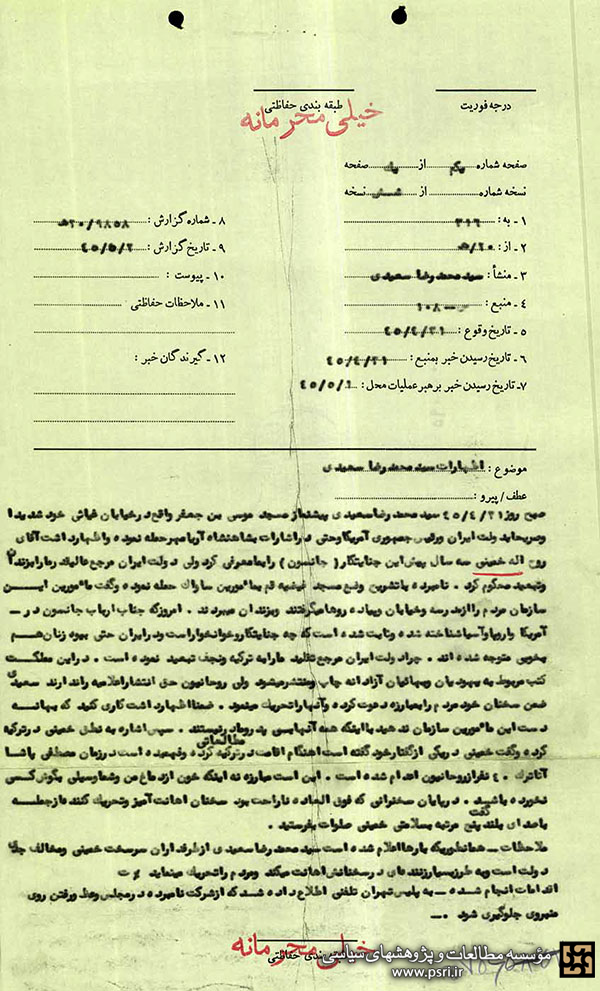 درجه فوریت
طبقه بندی حفاظتی
خیلی محرمانه
صفحه شماره یکم از یک صفحه
نسخه شماره از شش نسخه
۱ - به : ۳۱۶
۲ - از : ۲۰/ه۵
۳ - منشأ : سید محمد رضا سعیدی
۴ - منبع : ۱۰۸۰
۵ - تاریخ وقوع : ۴۵/۴/۳۱
۶ - تاریخ رسیدن خبر بمنبع : ۴۵/۴/۳۱
۷ - تاریخ رسیدن خبر برهبر عملیات محل : ۴۵/۵/۱
۸ - شماره گزارش : ۲۰/۹۸۵۸ ه
۹ - تاریخ گزارش : ۴۵/۵/۲
۱۰ - پیوست :
۱۱ - ملاحظات حفاظتی
۱۲ - گیرندگان خبر :
موضوع : اظهارات سید محمد رضا سعیدی
عطف / پیرو :
صبح روز ۴۵/۴/۳۱ سید محمد رضا سعیدی پیشنماز مسجد موسی بن جعفر واقع در خیابان غیاثی خود شدیدا
وصریحا بدولت ایران ورئیس جمهوری آمریکا وحتی در اشارات بشاهنشاه آریامهر حمله نموده و اظهار داشت آقای
روح اله خمینی سه سال پیش این جنایتکار (جانسون) را بما معرفی کرد ولی دولت ایران مرجع عالیقدر ما را بزندان
وتبعید محکوم کرد . نامبرده با تشریح وضع مسجد فیضیه قم بمامورین ساواک حمله نموده و گفت مامورین ایـن
سازمان مردم را از مدرسه وخیابان وپیاده روها میگرفتند وبزندان میبردند . امروز که جناب ارباب جانسون در ـ
آمریکا واروپا وآسیا شناخته شده وثابت شده است که چه جنایتکار وخونخوار است ودر ایران حتی بیوه زنان هـم
بخوبی متوجه شده اند . چرا دولت ایران مرجع تقلید ما را به ترکیه ونجف تبعید نموده است . در این مملکت
کتب مربوط به یهودیان وبهائیان آزادانه چاپ ومنتشر میشود ولی روحانیون حق انتشار اعلامیه را ندارند سعیدی
ضمن سخنان خود مردم را بمبارزه دعوت کرده وآنها را تحریک مینمود . ضمنا اظهار داشت کاری کنید که بهانـه
دست این مامورین سازمان ندهید با اینکه همه آنها بی پدر ومادر نیستند . سپس اشاره به نطق خمینی در ترکیه
کرده وگفت خمینی در یکی از گفتار خود گفته است هنگام اقامت در ترکیه مطالعاتی کرده وفهمیده است در زمان مصطفی پاشا
آتاترک ۴۰ نفر از روحانیون اعدام شده است . این است مبارزه نه اینکه خون از دماغ من وشما وسیلی بگوش کسی
نخورده باشد . در پایان سخنرانی که فوق العاده ناراحت بود سخنان اهانت آمیز وتحریک کننده از جمله گفت
با صدای بلند پنج مرتبه بسلامتی خمینی صلوات بفرستید .
ملاحظات ـ همانطوریکه بارها اعلام شده است سید محمد رضا سعیدی از طرفداران سرسخت خمینی ومخالف جدی
دولت است وبه طرز بسیار زننده ای در سخنانش اهانت میکند ومردم را تحریک مینماید
اقدامات انجام شده ـ به پلیس تهران تلفنی اطلاع داده شد که از شرکت نامبرده در مجلس وعظ ورفتن روی
منبر وی جلوگیری شود .ـ
طبقه بندی حفاظتی
خیلی محرمانه
مؤسسه مطالعات و پژوهشهای سیاسی
www.psri.ir